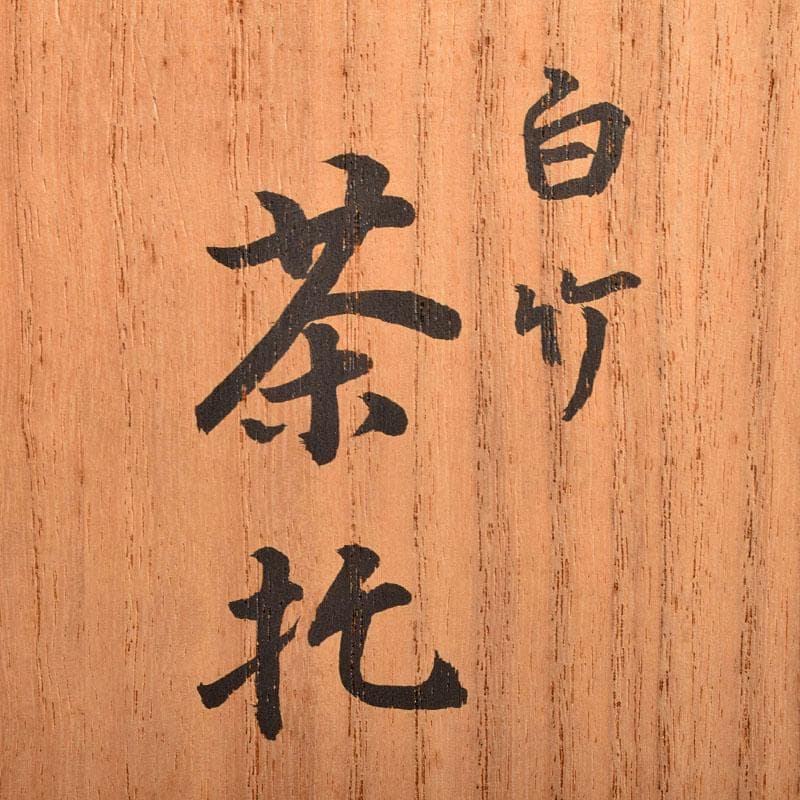 白竹
茶托